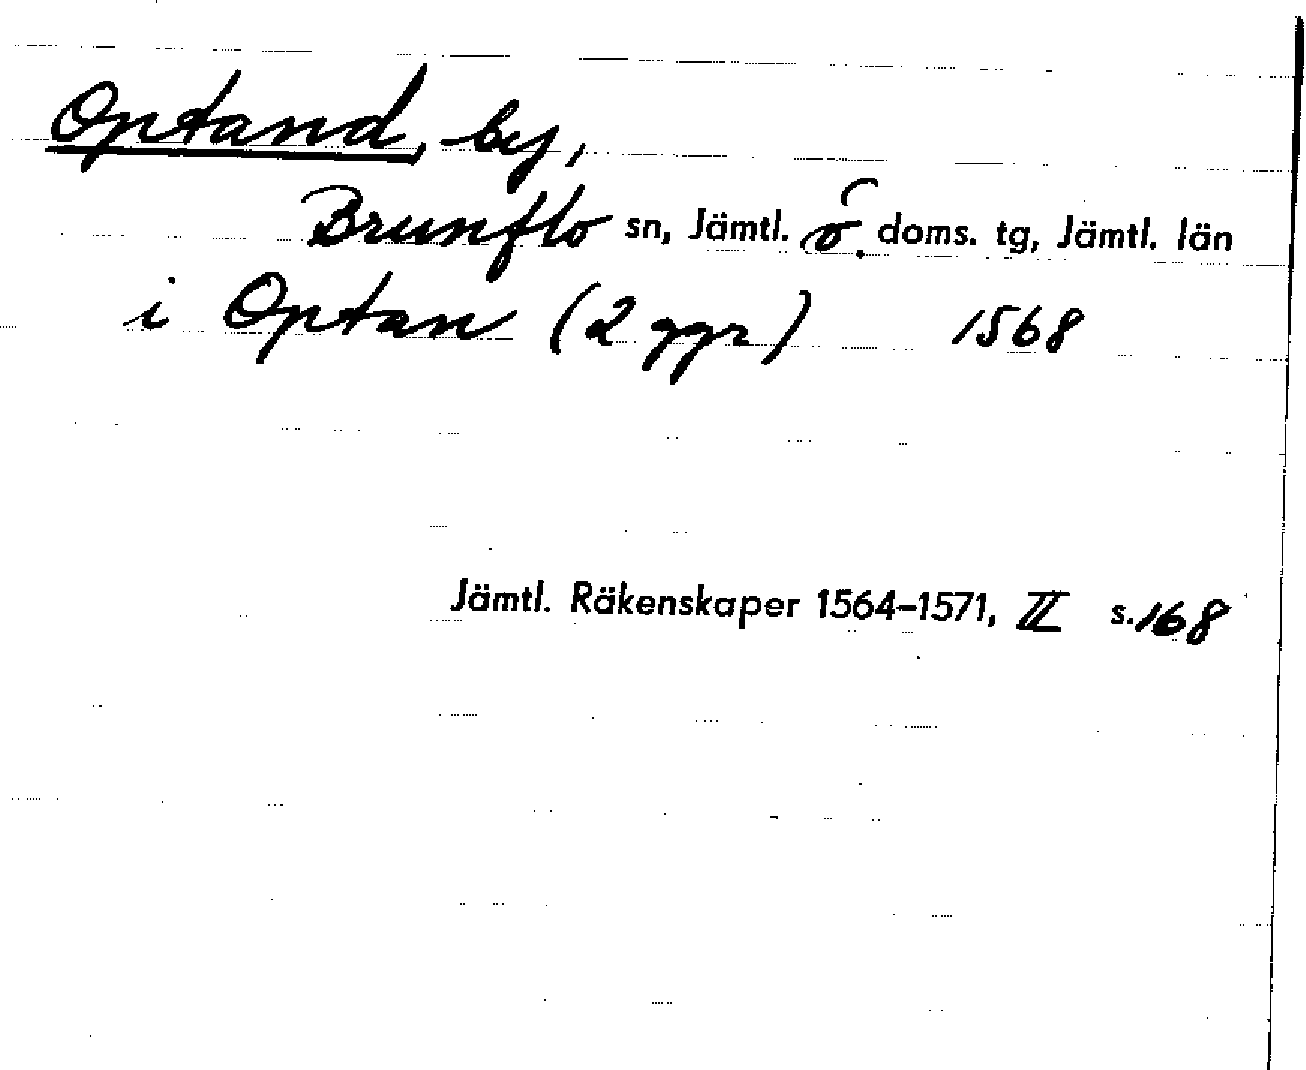 Optand, by,
Brunflo sn, Jämtl. ö. doms. tg, Jämtl. län
i Optan (2 ggr) 1568
Jämtl. Räkenskaper 1564–1571, II s. 168